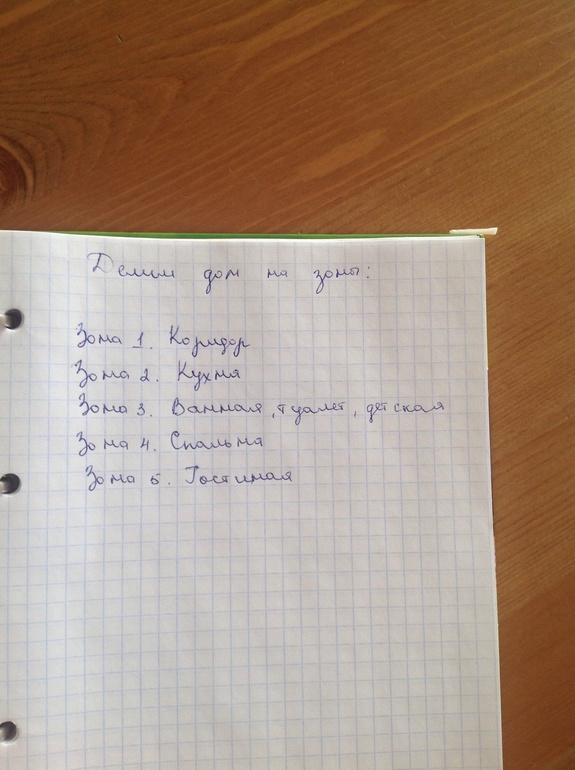 Делим дом на зоны:
Зона 1. Коридор
Зона 2. Кухня
Зона 3. Ванная, туалет, детская
Зона 4. Спальня
Зона 5. Гостиная